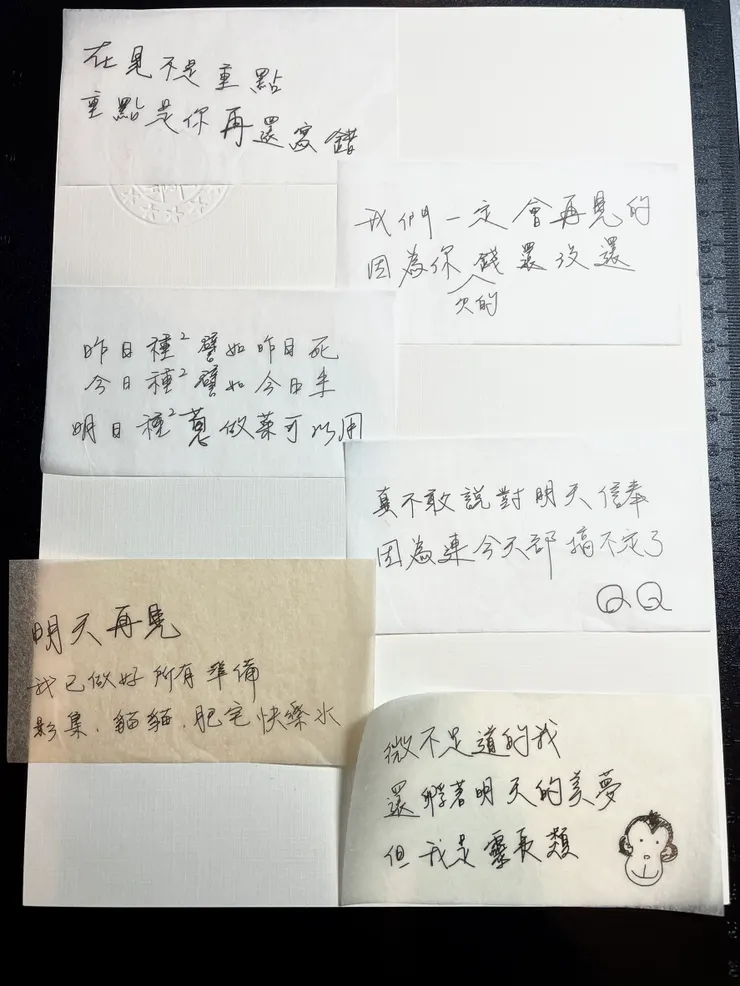 在見不是重點
重點是你再還寫錯
我們一定會再見的
因為你錢還沒還
欠的
昨日種²譬如昨日死
今日種²譬如今日生
明日種² 做菜可以用
真不敢說對明天信奉
因為連今天都搞不定了
QQ
明天再見
我已做好所有準備
影集、貓貓、肥宅快樂水
微不足道的我
還孵著明天的美夢
但我是靈長類